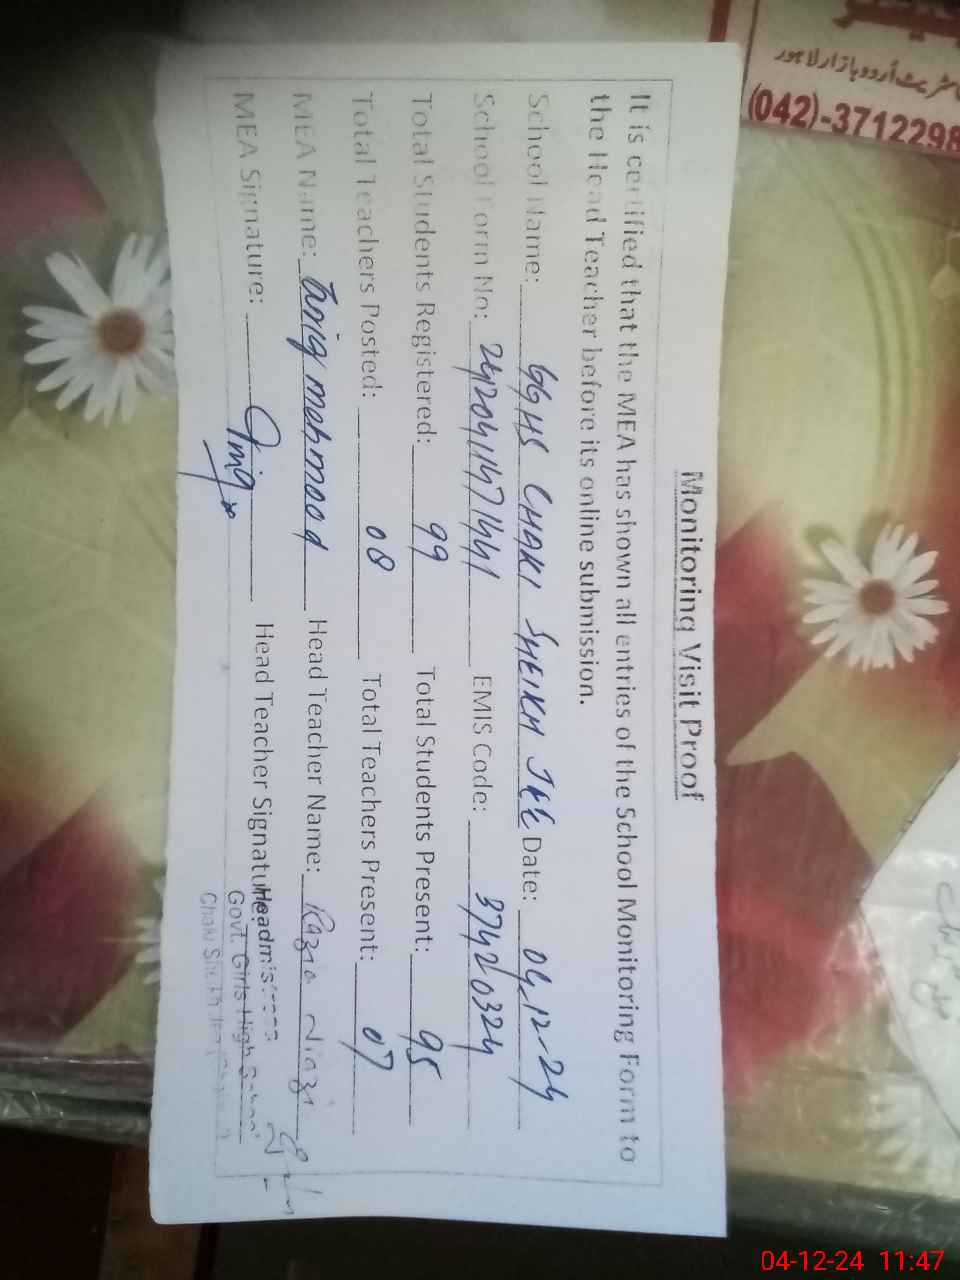 Monitoring Visit Proof
It is certified that the MEA has shown all entries of the School Monitoring Form to
the Head Teacher before its online submission.
School Name: GGHS CHAKI SHEIKH Date: 04-12-24
School Form No: EMIS Code: 37420324
Total Students Registered: 99 Total Students Present: 95
Total Teachers Posted: 08 Total Teachers Present: 07
MEA Name: Tariq mahmood Head Teacher Name: Razia Niazi
MEA Signature: Tariq Head Teacher Signature:
Headmistress
Govt. Girls High School
Chaki Sheikh
(042)-3712298
04-12-24 11:47